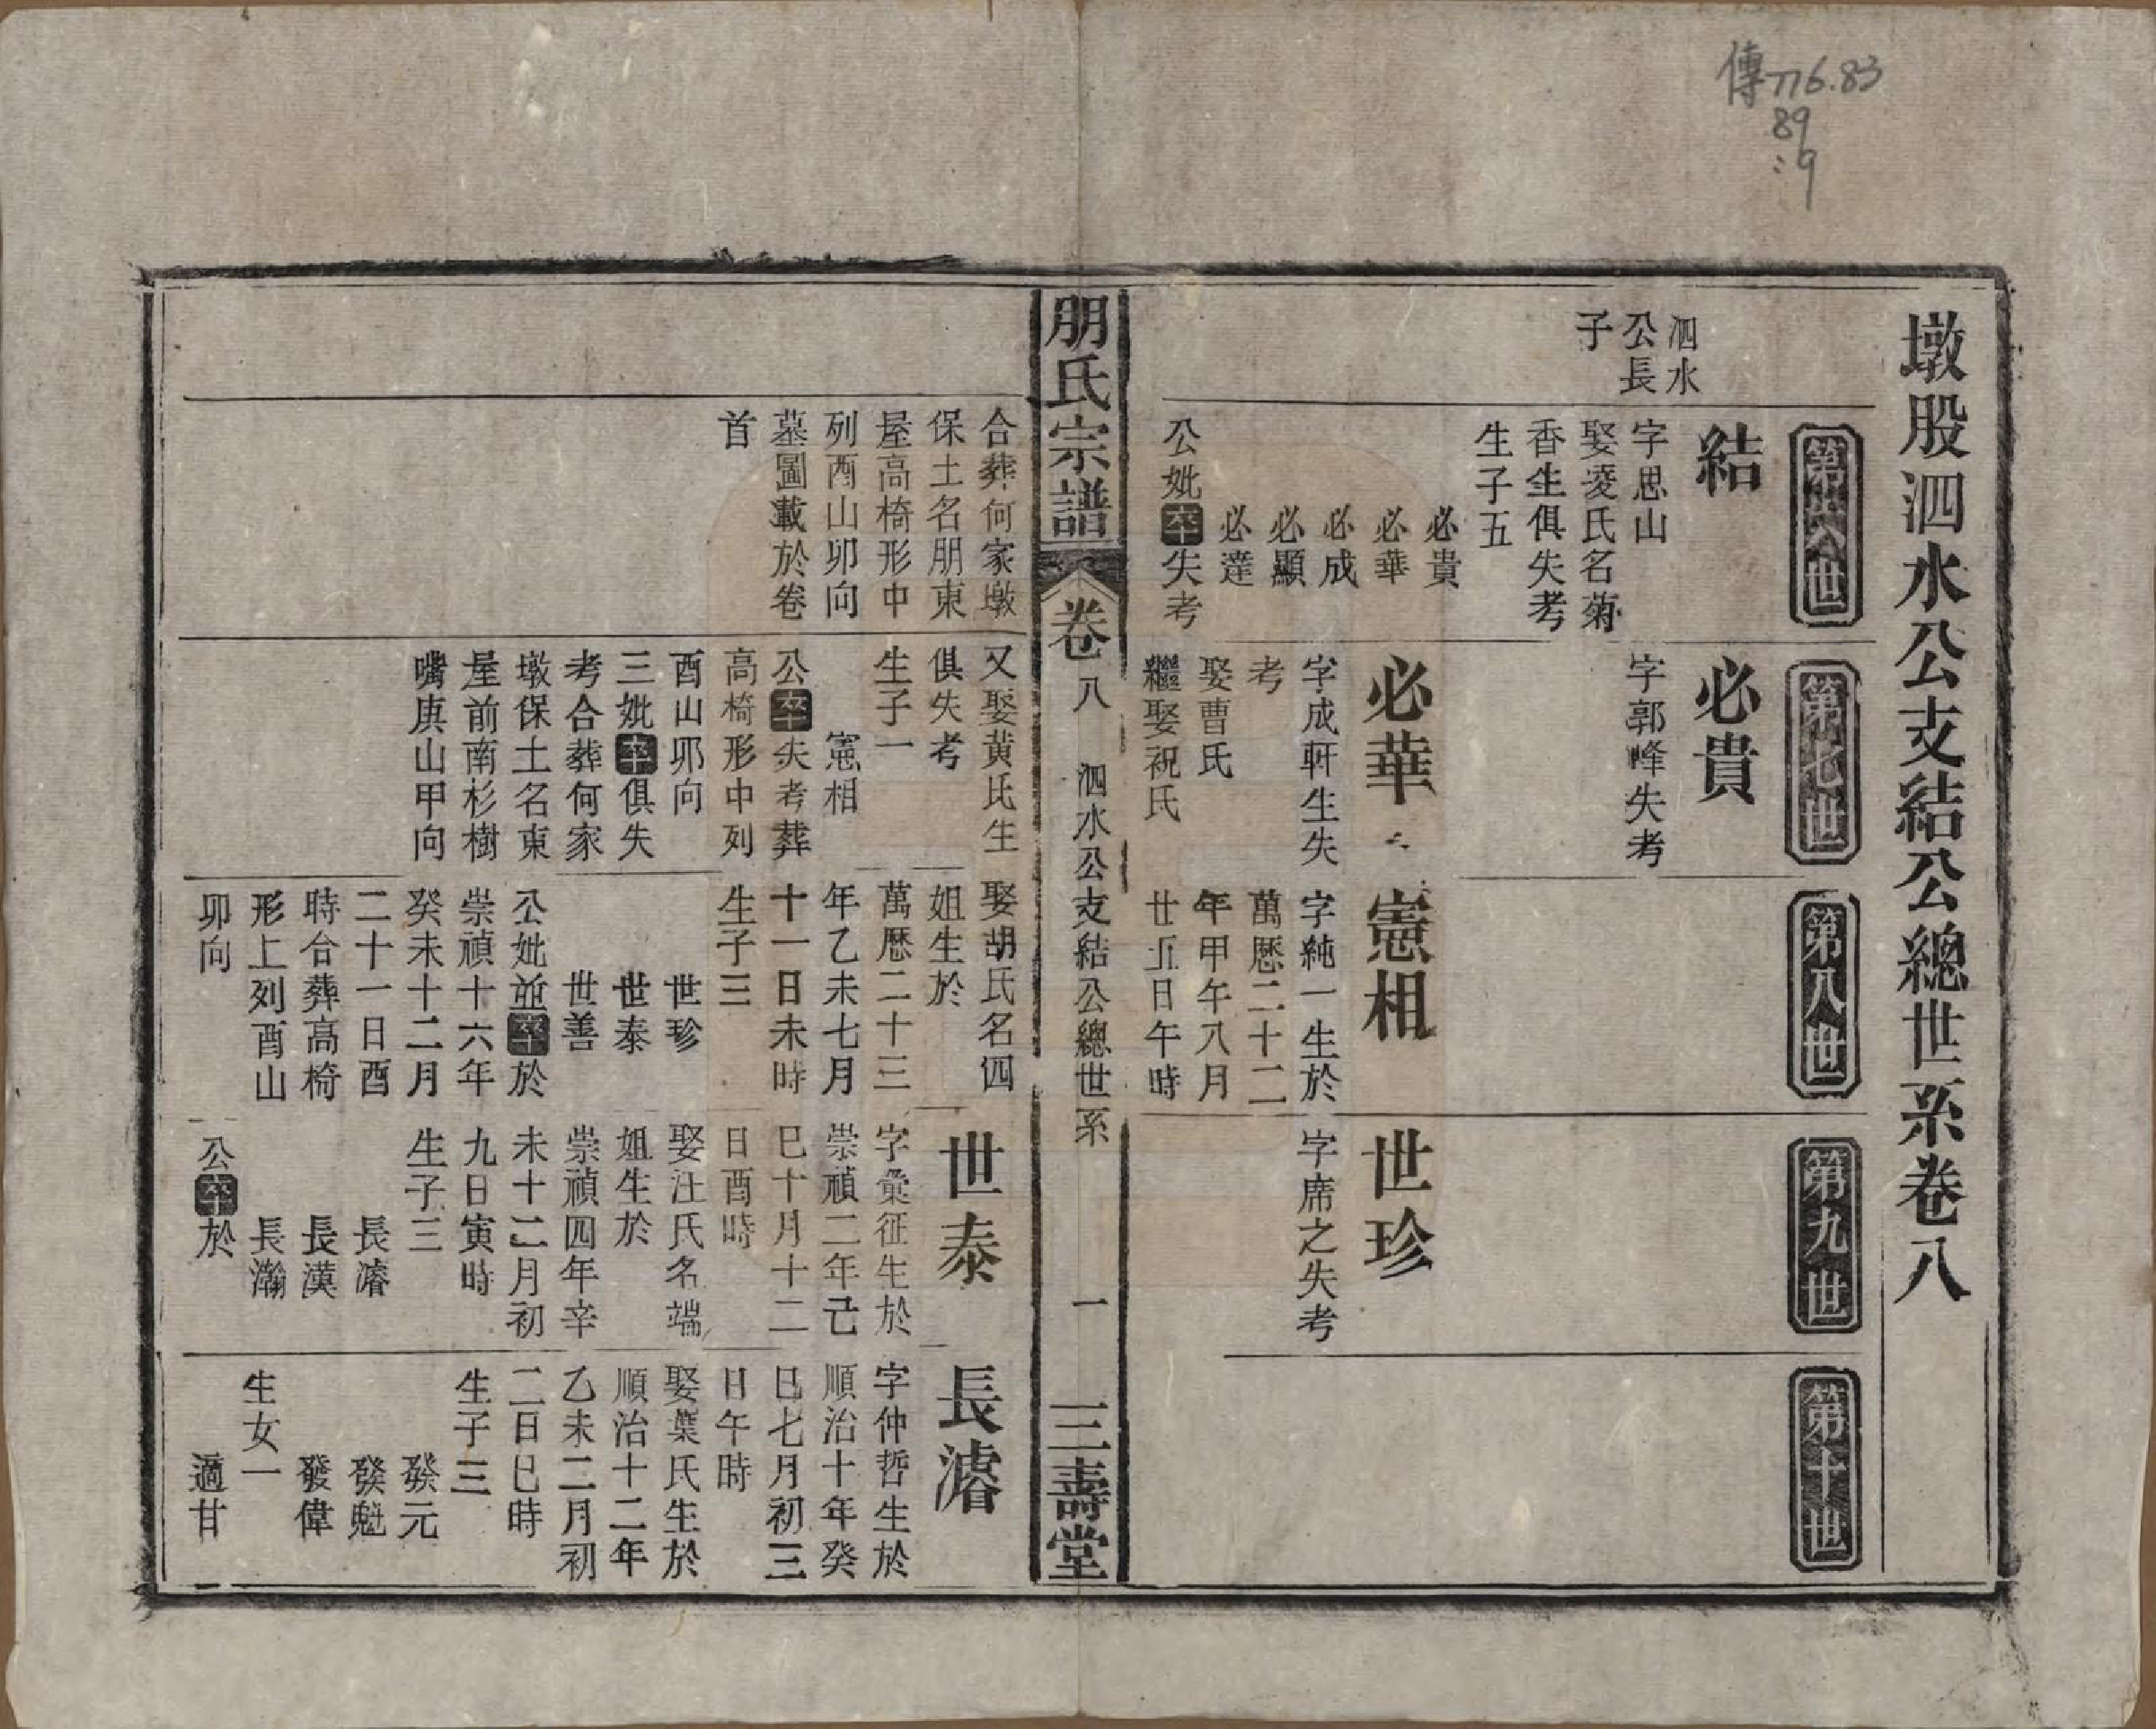 傳776.83
89
:9
墩股泗水公支結公總世系卷八
第六世
第七世
第八世
第九世
第十世
泗水
公長
子
結
字思山
娶凌氏名菊
香生俱失考
生子五
必貴
必華
必成
必顯
必達
公妣卒失考
必貴
字郭峰失考
必華
字成軒生失
考
娶曹氏
繼娶祝氏
憲相
字純一生於
萬厯二十二
年甲午八月
廿五日午時
世珍
字席之失考
朋氏宗譜
卷八
泗水公支結公總世系
一
三壽堂
合葬何家墩
保土名朋東
屋高椅形中
列酉山卯向
墓圖載於卷
首
又娶黃氏生
俱失考
生子一
憲相
公卒失考葬
高椅形中列
酉山卯向
三妣卒俱失
考合葬何家
墩保土名東
屋前南杉樹
嘴庚山甲向
娶胡氏名四
姐生於
萬厯二十三
年乙未七月
十一日未時
生子三
世珍
世泰
世善
公妣並卒於
崇禎十六年
癸未十二月
二十一日酉
時合葬高椅
形上列酉山
卯向
世泰
字彙征生於
崇禎二年己
巳十月十二
日酉時
娶汪氏名端
姐生於
崇禎四年辛
未十二月初
九日寅時
生子三
長濬
長漢
長瀚
公卒於
長濬
字仲哲生於
順治十年癸
巳七月初三
日午時
娶葉氏生於
順治十二年
乙未二月初
二日巳時
生子三
發元
發魁
發偉
生女一
適甘